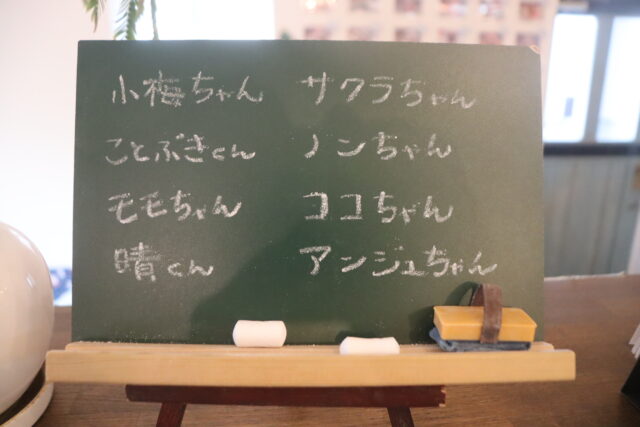 小梅ちゃん サクラちゃん
ことぶきくん ノンちゃん
モモちゃん ココちゃん
晴くん アンジュちゃん